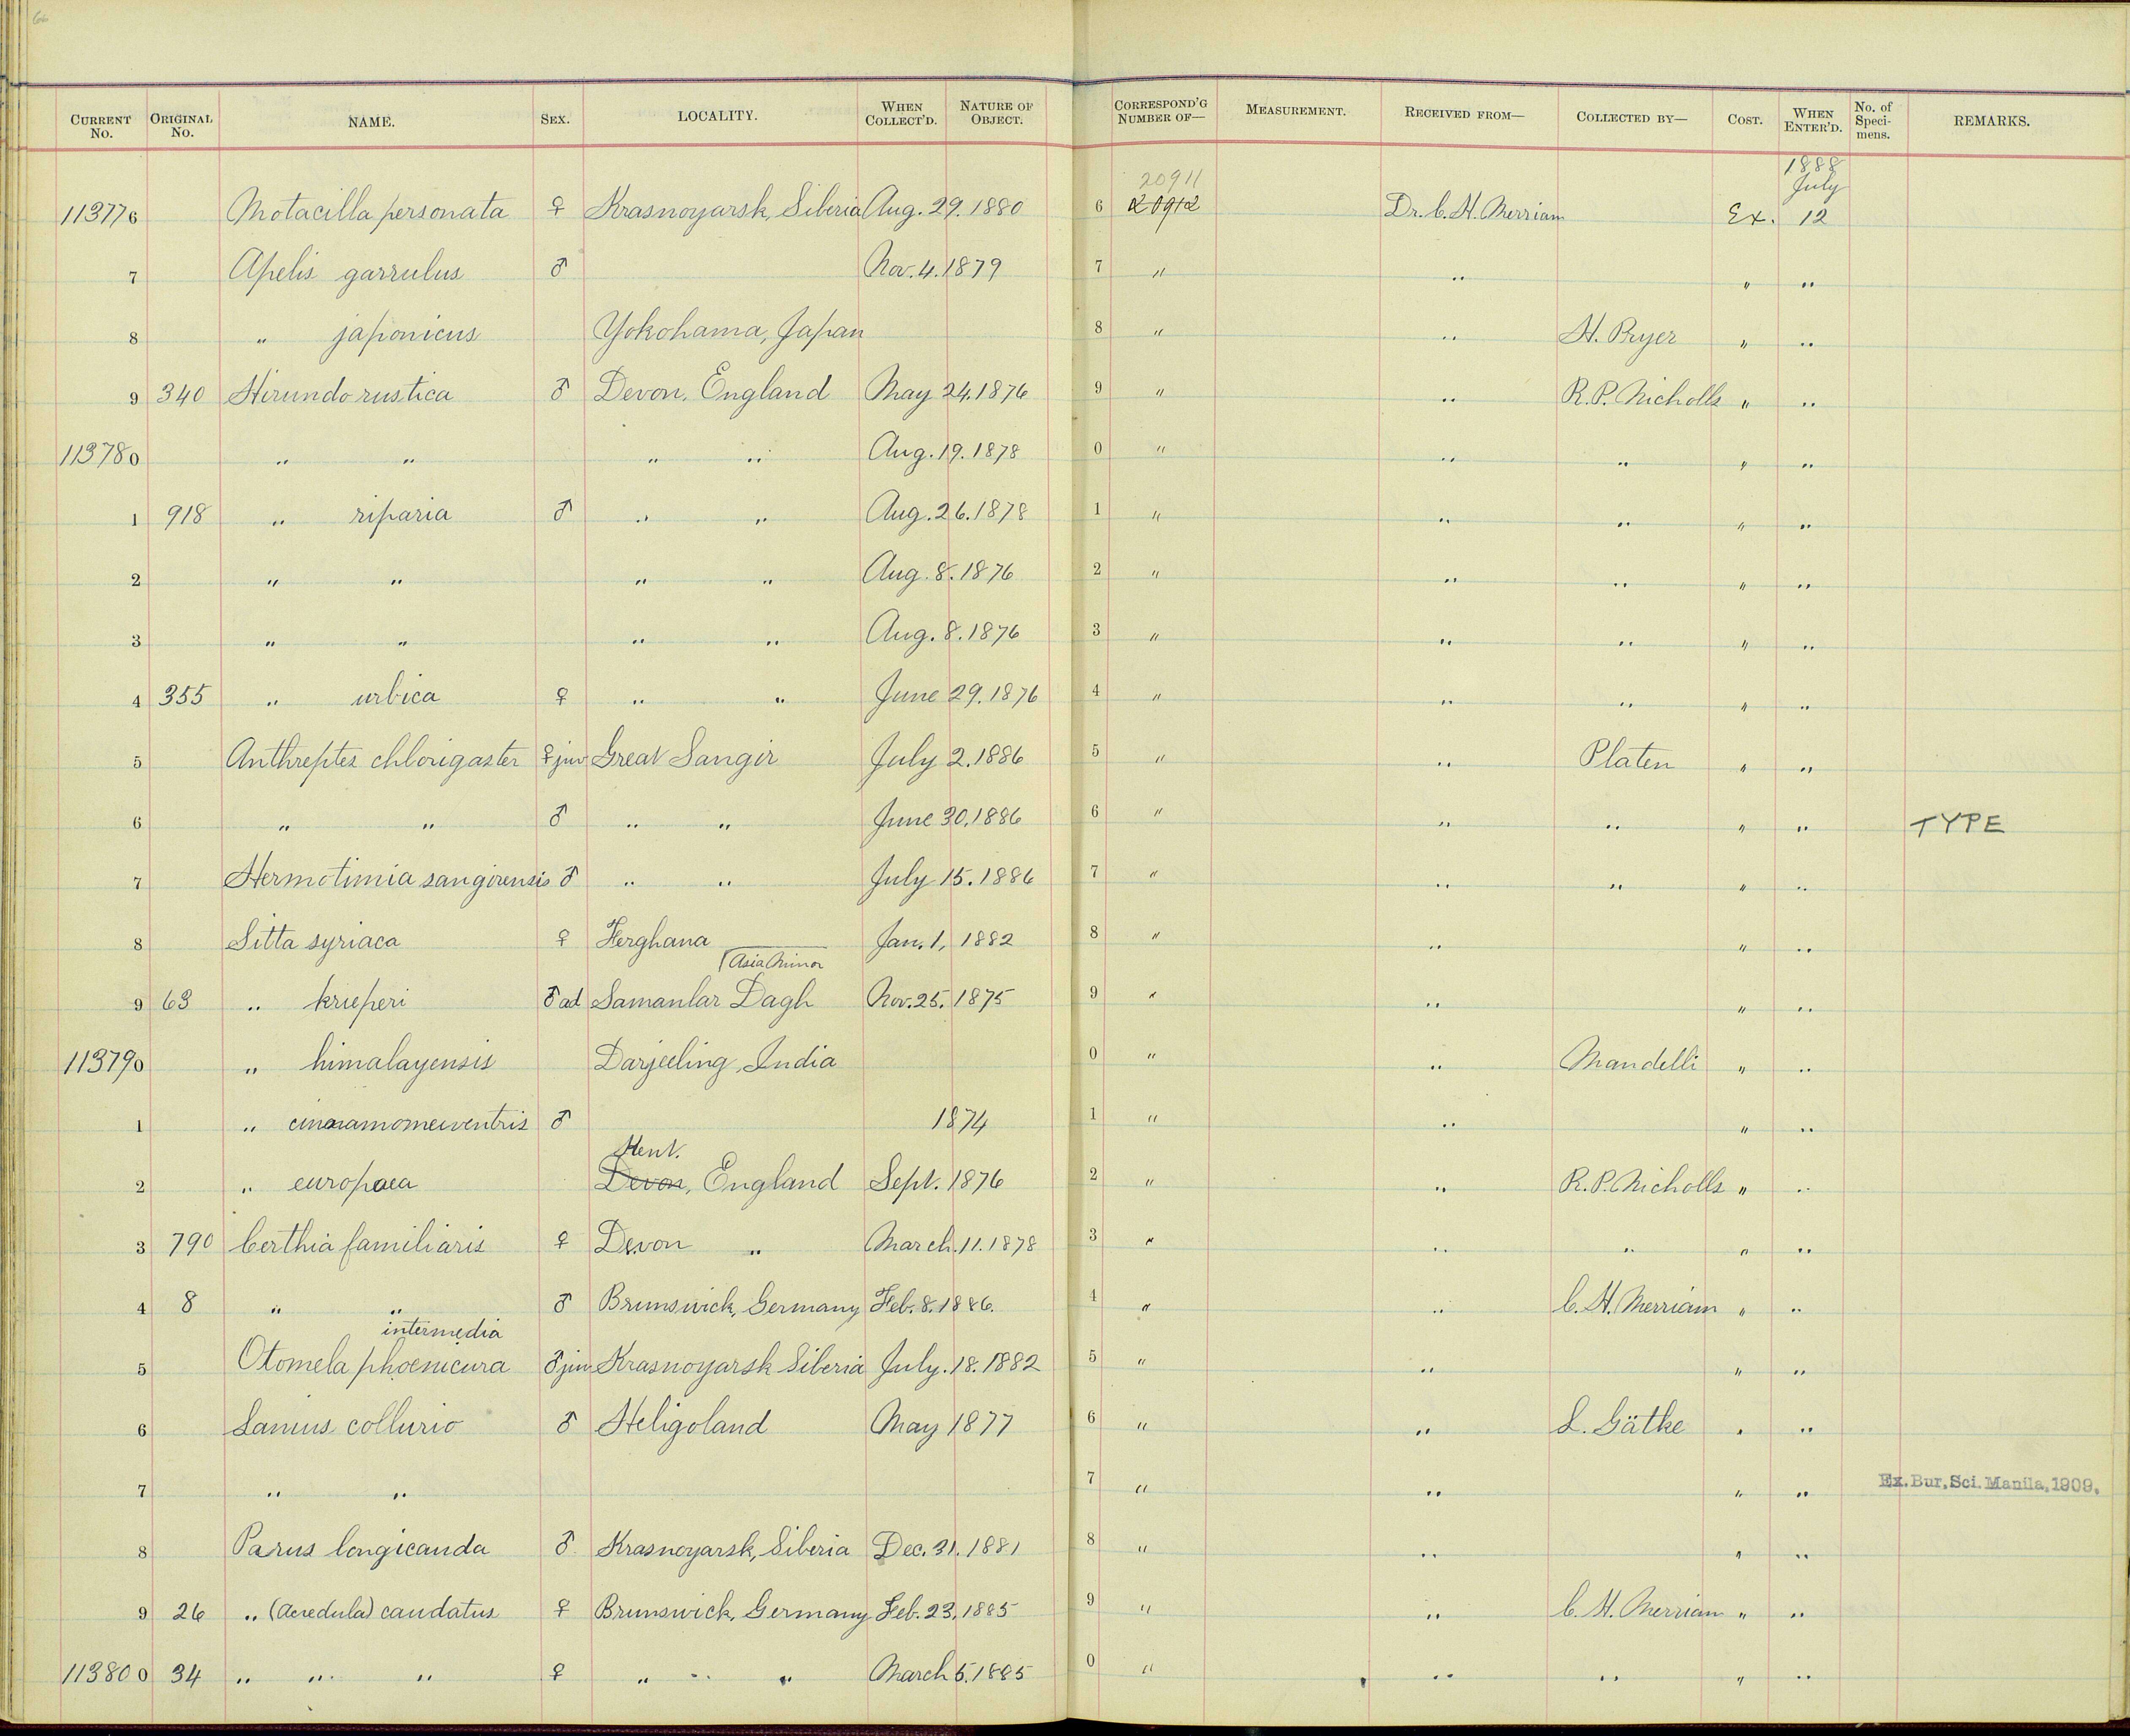 66
CURRENT No. ORIGINAL No. NAME. SEX. LOCALITY. WHEN COLLECT'D. NATURE OF OBJECT. CORRESPOND'G NUMBER OF— MEASUREMENT. RECEIVED FROM— COLLECTED BY— COST. WHEN ENTER'D. No. of Speci- mens. REMARKS.
20911 1888 July
113776 Motacilla personata ♀ Krasnoyarsk, Siberia Aug. 29. 1880 6 20912 Dr. C. H. Merriam Ex. 12
7 Apelis garrulus ♂ Nov. 4. 1879 7 " " " "
8 " japonicus Yokohama, Japan 8 " " H. Pryer " "
9 340 Hirundo rustica ♂ Devon, England May 24. 1876 9 " " R. P. Nicholls " "
113780 " " " " Aug. 19. 1878 0 " " " " "
1 918 " riparia ♂ " " Aug. 26. 1878 1 " " " " "
2 " " " " Aug. 8. 1876 2 " " " " "
3 " " " " Aug. 8. 1876 3 " " " " "
4 355 " urbica ♀ " " June 29. 1876 4 " " " " "
5 Anthreptes chlorigaster ♀ juv Great Sangir July 2. 1886 5 " " Platen " "
6 " " ♂ " " June 30. 1886 6 " " " " " TYPE
7 Hermotimia sangirensis ♂ " " July 15. 1886 7 " " " " "
8 Sitta syriaca ♀ Ferghana Jan. 1, 1882 8 " " " "
Asia Minor
9 63 " krueperi ♂ ad Samanlar Dagh Nov. 25. 1875 9 " " " "
113790 " himalayensis Darjeeling, India 0 " " Mandelli " "
1 " cinnamomeiventris ♂ 1874 1 " " " "
Kent.
2 " europaea Devon, England Sept. 1876 2 " " R. P. Nicholls " "
3 790 Certhia familiaris ♀ Devon " March. 11. 1878 3 " " " " "
4 8 " " ♂ Brunswick, Germany Feb. 8. 1886. 4 " " C. H. Merriam " "
intermedia
5 Otomela phoenicura ♂ juv Krasnoyarsk Siberia July. 18. 1882 5 " " " "
6 Lanius collurio ♂ Heligoland May 1877 6 " " L. Gätke " "
7 " " 7 " " " " Ex. Bur. Sci. Manila, 1909.
8 Parus longicauda ♂ Krasnoyarsk, Siberia Dec. 31. 1881 8 " " " "
9 26 " (Acredula) caudatus ♀ Brunswick, Germany Feb. 23, 1885 9 " " C. H. Merriam " "
113800 34 " " " ♀ " " " March 5. 1885 0 " " " " "